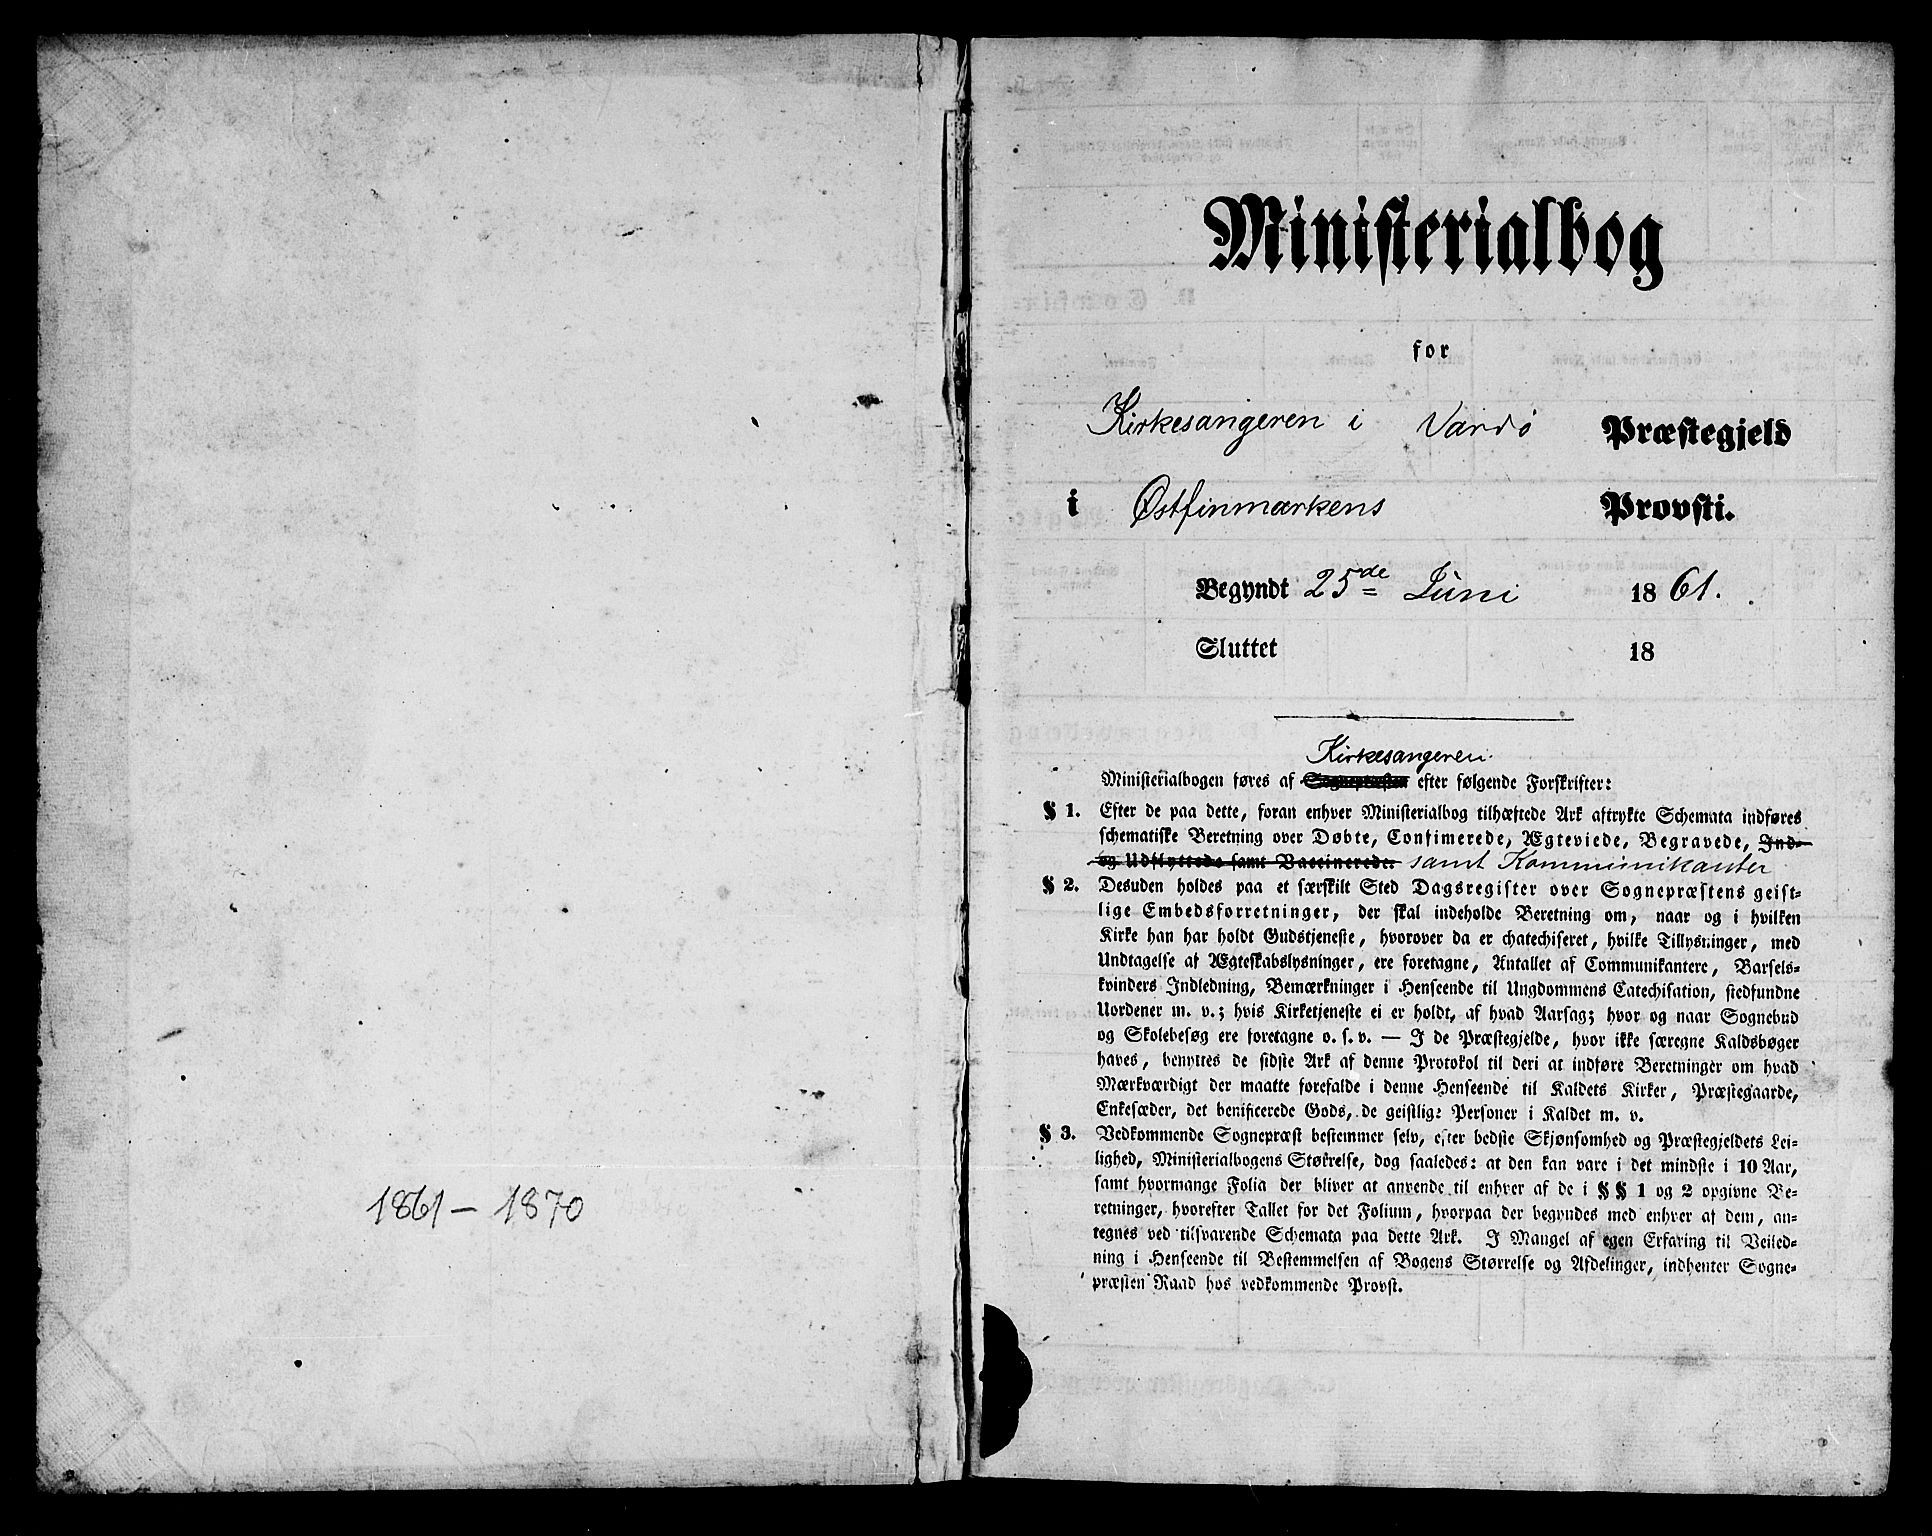 1861 – 1870
Ministerialbog
for
Kirkesangeren i Vardø Præstegjeld
i Østfinmarkens Provsti.
Begyndt 25de Juni 1861.
Sluttet 18
Kirkesangeren
Ministerialbogen føres af Sognepræsten efter følgende Forskrifter:
§ 1. Efter de paa dette, foran enhver Ministerialbog tilhæftede Ark aftrykte Schemata indføres
schematiske Beretning over Døbte, Confimerede, Ægteviede, Begravede, Ind-
og Udflyttede samt Vaccinerede. samt Kommunikanter
§ 2. Desuden holdes paa et særskilt Sted Dagsregister over Sognepræstens geist-
lige Embedsforretninger, der skal indeholde Beretning om, naar og i hvilken
Kirke han har holdt Gudstjeneste, hvorover da er chatechiseret, hvilke Tillysninger, med
Undtagelse af Ægteskabslysninger, ere foretagne, Antallet af Communikantere, Barsels-
kvinders Indledning, Bemærkninger i Henseende til Ungdommens Catechisation, stedfundne
Uordener m. v.; hvis Kirketjeneste ei er holdt, af hvad Aarsag; hvor og naar Sognebud
og Skolebesøg ere foretagne o. s. v. — I de Præstegjelde, hvor ikke særegne Kaldsbøger
haves, benyttes de sidste Ark af denne Protokol til deri at indføre Beretninger om hvad
Mærkværdigt der maatte forefalde i denne Henseende til Kaldets Kirker, Præstegaarde,
Enkesæder, det benificerede Gods, de geistlige Personer i Kaldet m. v.
§ 3. Vedkommende Sognepræst bestemmer selv, efter bedste Skjønsomhed og Præstegjeldets Lei-
lighed, Ministerialbogens Størrelse, dog saaledes: at den kan vare i det mindste i 10 Aar,
samt hvormange Folia der bliver at anvende til enhver af de i §§ 1 og 2 opgivne Be-
retninger, hvorefter Tallet for det Folium, hvorpaa der begyndes med enhver af dem, an-
tegnes ved tilsvarende Schemata paa dette Ark. I Mangel af egen Erfaring til Veiled-
ning i Henseende til Bestemmelsen af Bogens Størrelse og Afdelinger, indhenter Sogne-
præsten Raad hos vedkommende Provst.